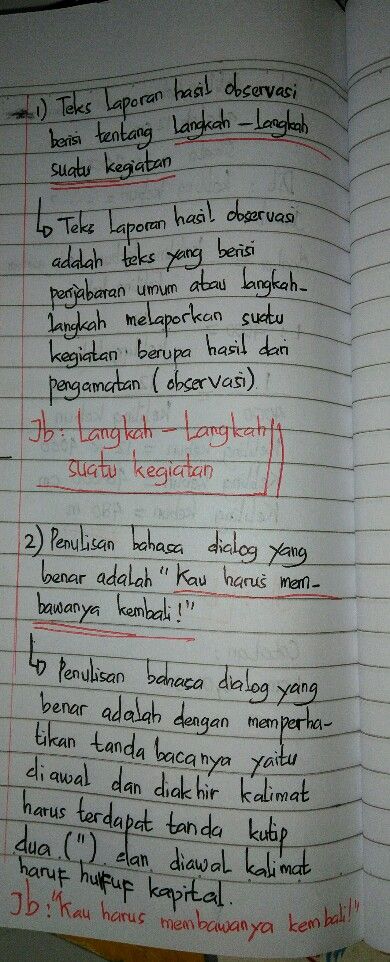 1) Teks Laporan hasil observasi
berisi tentang Langkah - Langkah
suatu kegiatan
↳ Teks Laporan hasil observasi
adalah teks yang berisi
penjabaran umum atau langkah-
langkah melaporkan suatu
kegiatan berupa hasil dari
pengamatan (observasi)
Jb: Langkah - Langkah
suatu kegiatan
2) Penulisan bahasa dialog yang
benar adalah "Kau harus mem-
bawanya kembali!"
↳ Penulisan bahasa dialog yang
benar adalah dengan memperha-
tikan tanda bacanya yaitu
di awal dan diakhir kalimat
harus terdapat tanda kutip
dua (") dan diawal kalimat
haruf huruf kapital.
Jb: "Kau harus membawanya kembali!"